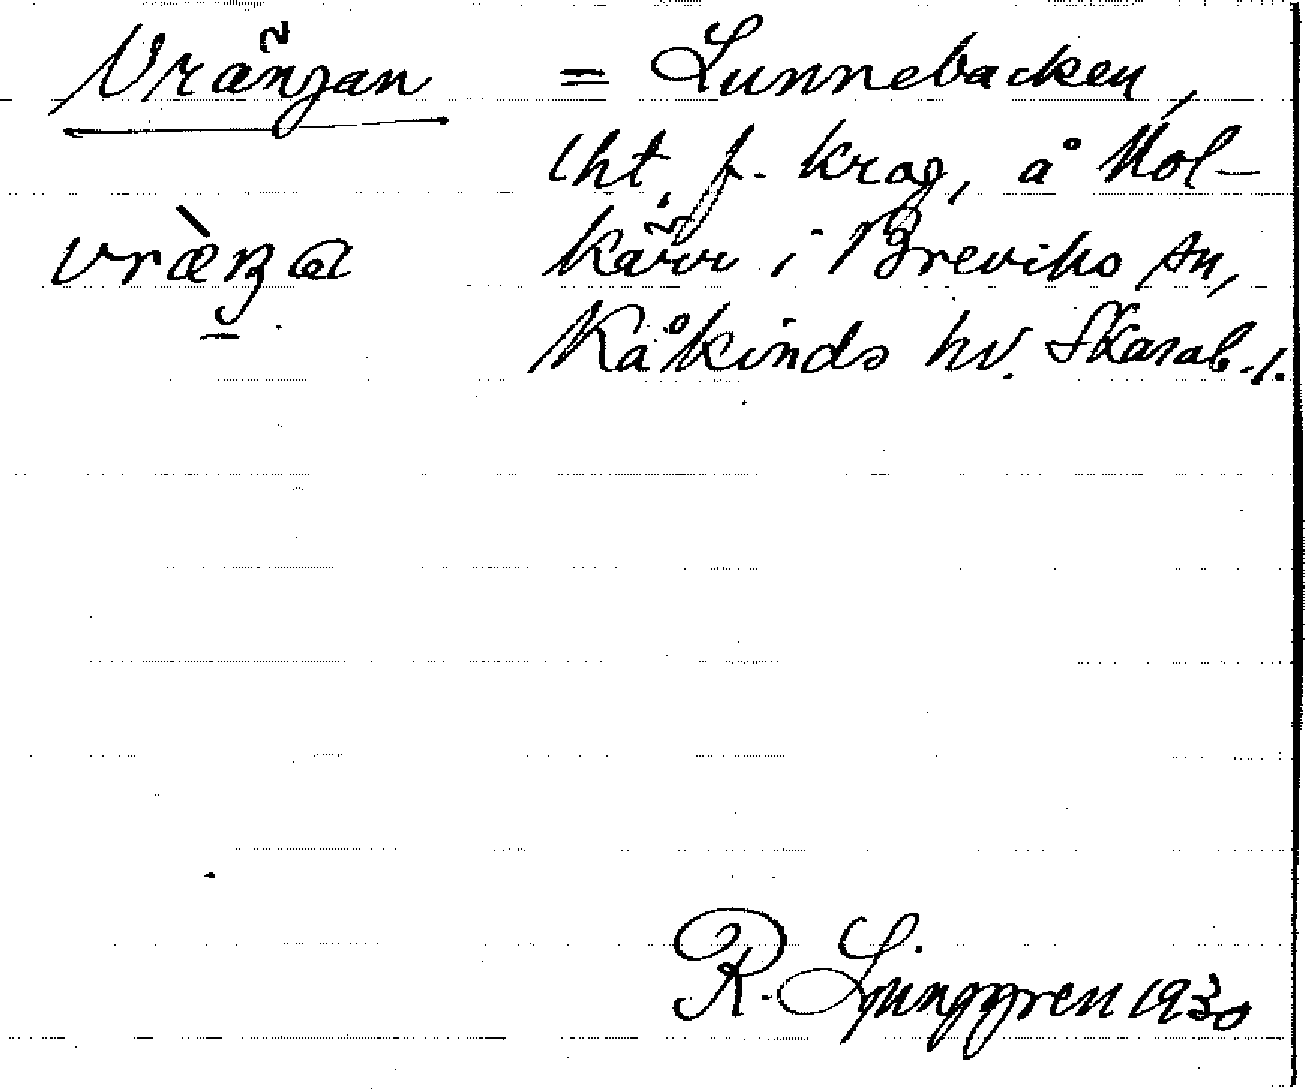 Vrängan = Lunnebacken,
lht, f. krog, å Mol-
kärr i Breviks sn,
Kåkinds hd. Skarab. l.
R. Ljunggren 1930